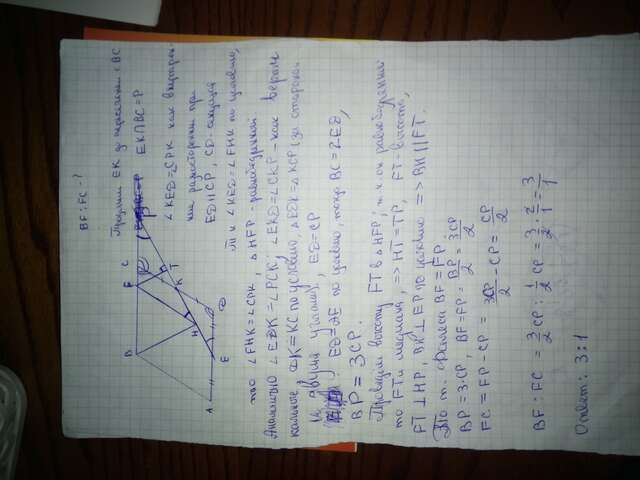 BF : FC - ?
Продлим EK до пересечения с BC
EK∩BC=P
∠KED=∠CPK как внутрен-
ние разносторонни при
ED∥CP, CD-секущая
Т.к ∠KED=∠FHK по условию,
то ∠FHK=∠CPK, △HFP-равнобедренный
Аналогично ∠EDK=∠PCK, ∠EKD=∠CKP-как верти-
кальные DK=KC по условию, △EDK=△KCP (за стороной
и двумя углами), ED=CP
ED=AE по условию, тогда BC=2ED,
BP=3CP.
Проведём высоту FT в △HFP, т.к он равнобедренный
то FT и медиана, => HT=TP, FT-высота,
FT⊥HP, BH⊥EP по условию => BH∥FT.
По т. Фалеса BF=FP
BP=3·CP, BF=FP=BP/2=3CP/2
FC=FP-CP=3CP/2-CP=CP/2
BF:FC=3/2CP:1/2CP=3/2·2/1=3/1
Ответ: 3:1
B
F
C
P
T
K
H
A
E
D